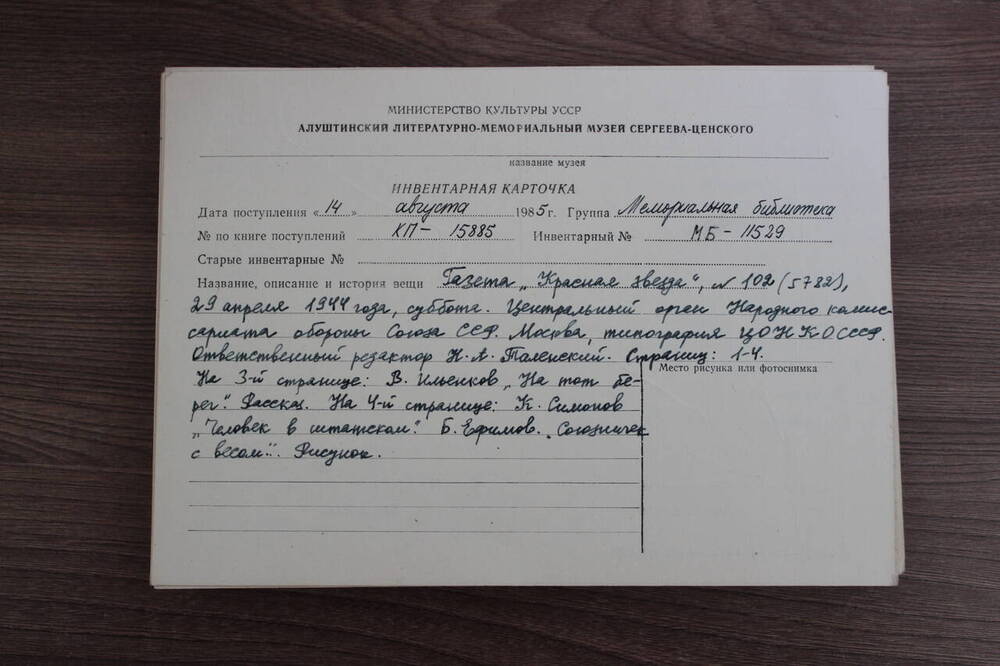 МИНИСТЕРСТВО КУЛЬТУРЫ УССР
АЛУШТИНСКИЙ ЛИТЕРАТУРНО-МЕМОРИАЛЬНЫЙ МУЗЕЙ СЕРГЕЕВА-ЦЕНСКОГО
название музея
ИНВЕНТАРНАЯ КАРТОЧКА
Дата поступления «14» августа 1985 г. Группа Мемориальная библиотека
№ по книге поступлений КП- 15885 Инвентарный № МБ - 11529
Старые инвентарные №
Название, описание и история вещи Газета „Красная звезда", № 102 (5782),
29 апреля 1944 года, суббота. Центральный орган Народного комис-
сариата обороны Союза ССР. Москва, типография ЦО НКО СССР.
Ответственный редактор Н. А. Таленский. Страниц: 1-4.
Место рисунка или фотоснимка
На 3-й странице: В. Ильенков „На тот бе-
рег". Рассказ. На 4-й странице: К. Симонов
„Человек в штатском". Б. Ефимов. „Союзничек
с весом". Рисунок.